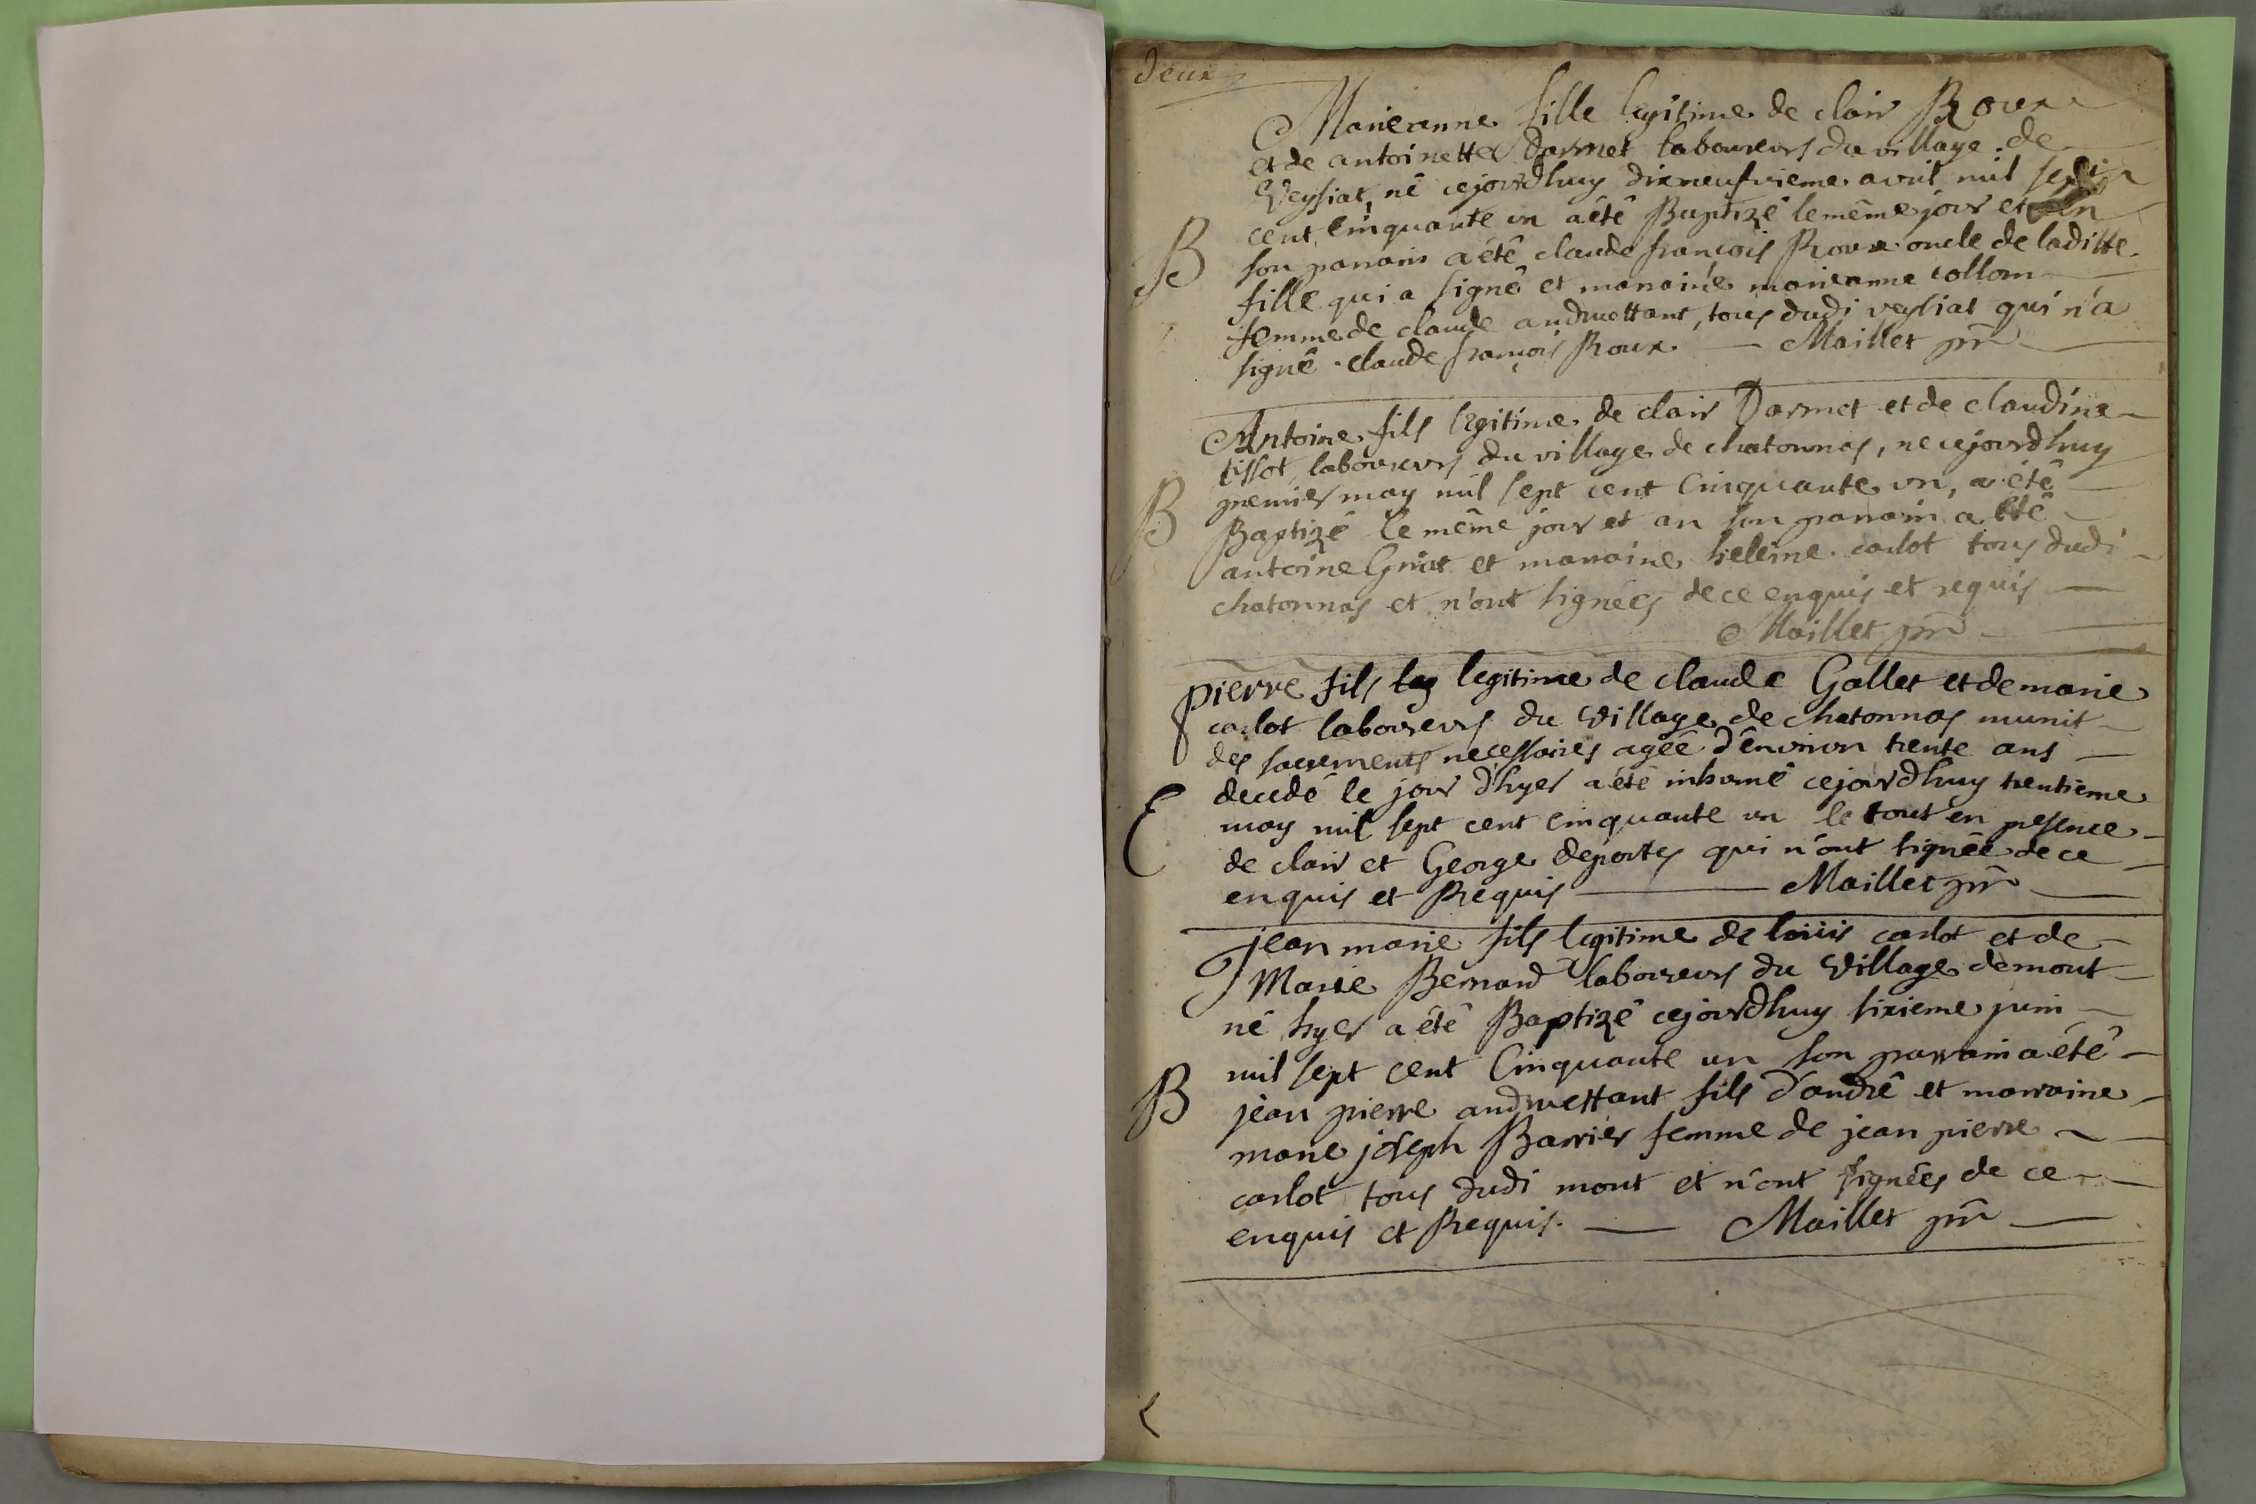 deux
Marieanne fille legitime de clair Roux
et de antoinette Darmet laboureurs du village de
Veysiat, né cejourdhuy dixneufvieme avril mil sept
cent cinquante un a été Baptizé le même jour et an
B
son parrain a été claude françois Roux oncle de laditte
fille qui a signé et marraine marieanne collom
femme de claude andruettant, tous dudi veysiat qui n'a
signé claude françois Roux Maillet prr
Antoine fils legitime de clair Darmet et de claudine
tissot laboureurs du village de chatonnas, ne cejourdhuy
premier may mil sept cent cinquante un, a été
B
Baptizé le même jour et an son parrain a été
antoine et marraine heleine carlot tous dudi
chatonnas et n'ont signées de ce enquis et requis
Maillet prr
pierre fils leg legitime de claude Gallet et de marie
carlot laboureurs du village de chatonnas munit
des sacrements necessaires agée d'environ trente ans
E
decedé le jour d'hyer a été inhumé cejourdhuy trentieme
may mil sept cent cinquante un le tout en presence
de clair et George deportes qui n'ont signée de ce
enquis et Requis Maillet prr
jean marie fils legitime de loüis carlot et de
Marie Bernard laboureurs du village demont
né hyer a été Baptizé cejourdhuy sixieme juin
mil sept cent Cinquante un son parrain a été
B
jean pierre andruettant fils d'andré et marraine
marie joseph Barrier femme de jean pierre
carlot tous dudi mont et n'ont signées de ce
enquis et Requis. Maillet prr